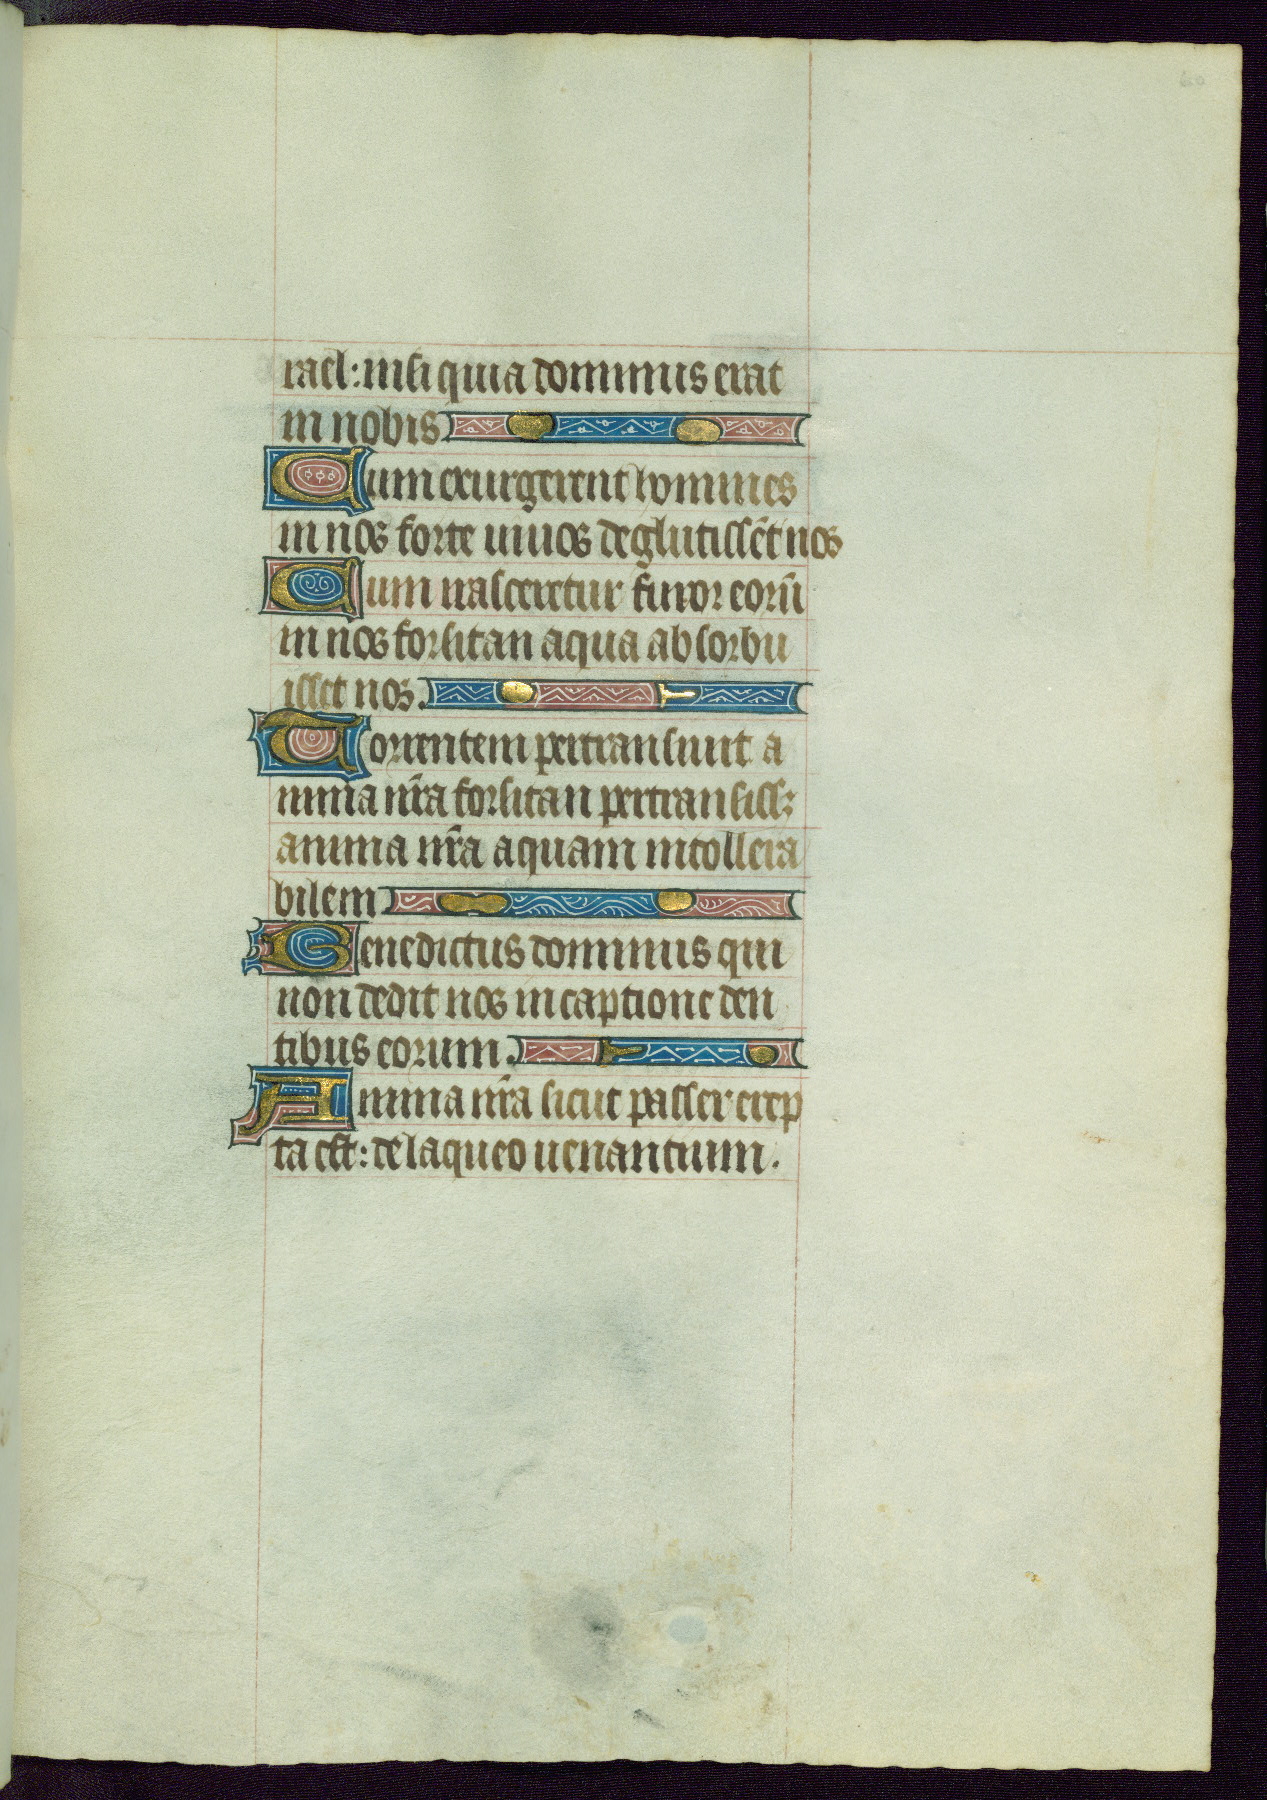 rael: nisi quia dominus erat
in nobis
Cum exurgerent homines
in nos forte uiuos deglutissēt nos
Cum irasceretur furor eorū
in nos forsitan aqua absorbu
isset nos.
Torrentem pertransiuit a
nima nr̄a forsitan pertransiss;
anima nr̄a aquam intollera
bilem
Benedictus dominus qui
non dedit nos in captione den
tibus eorum.
Anima nr̄a sicut passer erep
ta est: de laqueo uenantium.